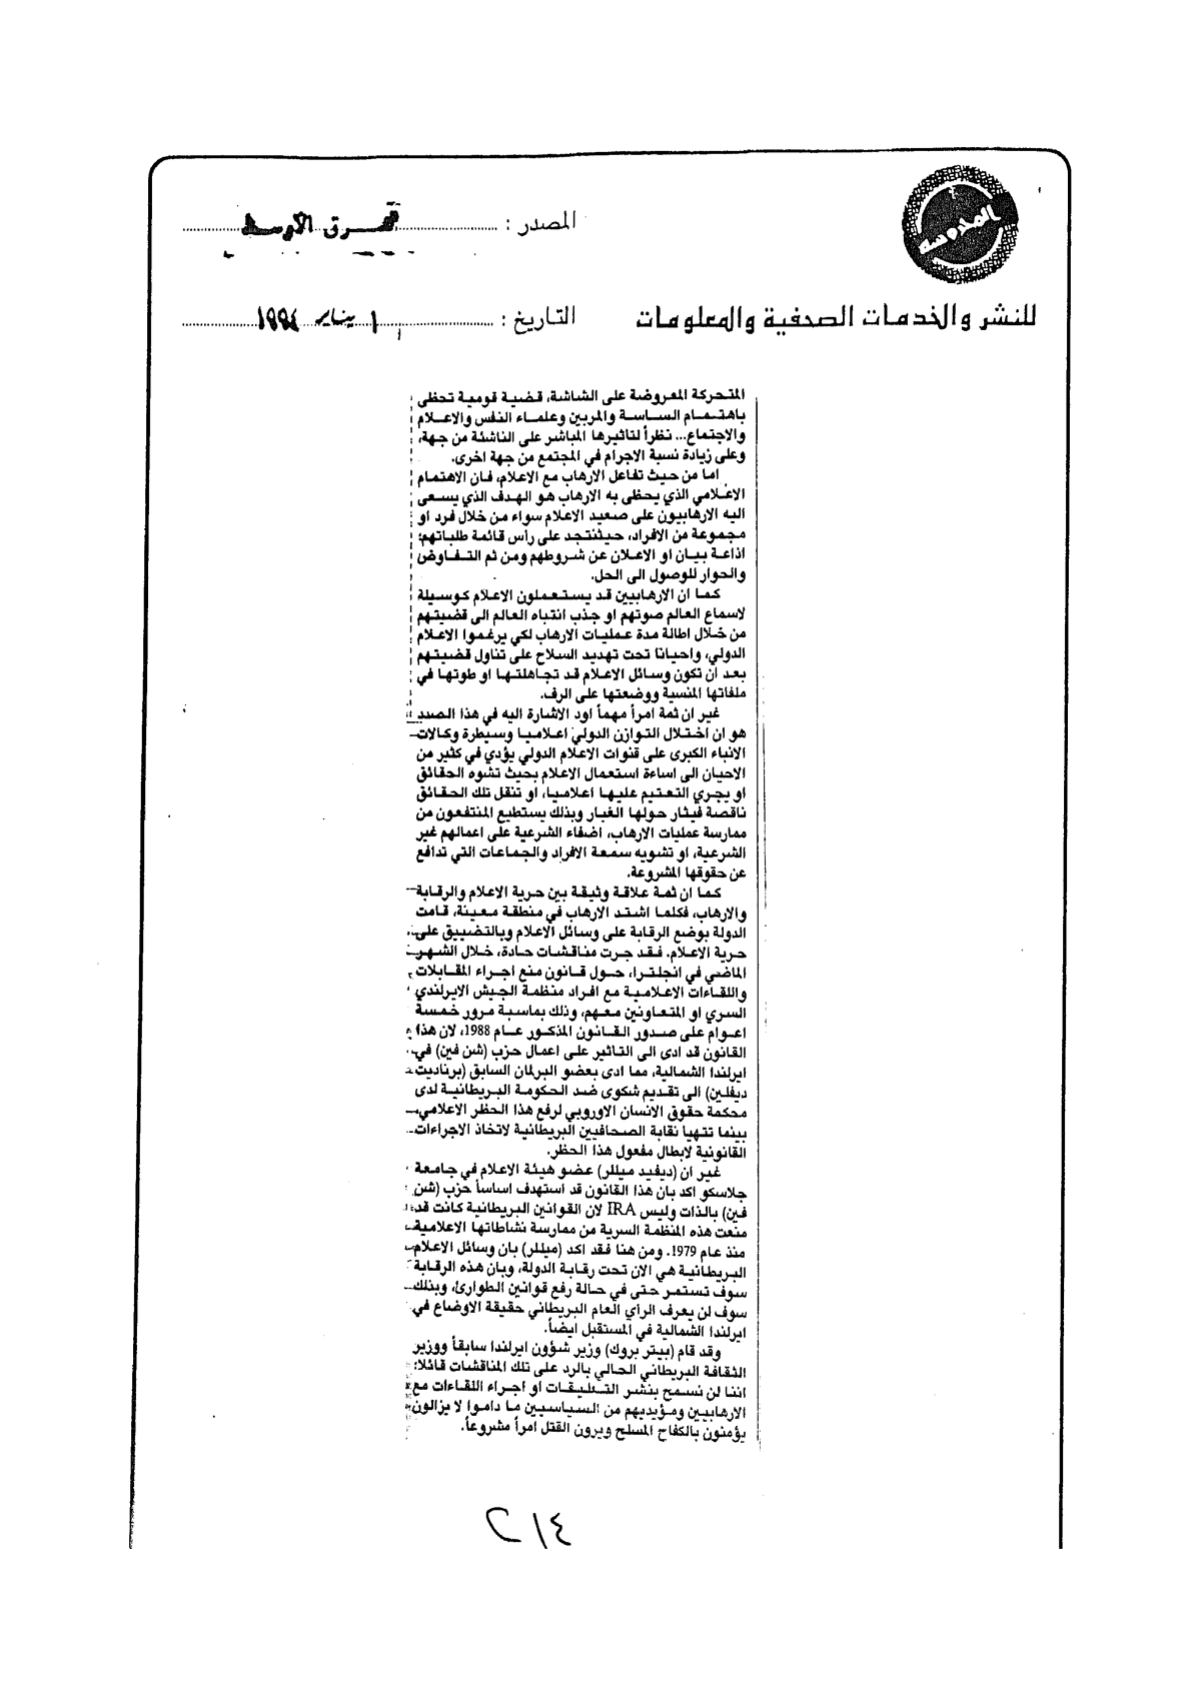 المدوسة
المصدر : الشرق الاوسط
للنشر والخدمات الصحفية والمعلومات
التاريخ : ١ يناير ١٩٩٤
المتحركة المعروضة على الشاشة، قضية قومية تحظى
باهتمام الساسة والمربين وعلماء النفس والاعلام
والاجتماع... نظراً لتاثيرها المباشر على الناشئة من جهة،
وعلى زيادة نسبة الاجرام في المجتمع من جهة اخرى.
اما من حيث تفاعل الارهاب مع الاعلام، فان الاهتمام
الاعلامي الذي يحظى به الارهاب هو الهدف الذي يسعى
اليه الارهابيون على صعيد الاعلام سواء من خلال فرد او
مجموعة من الافراد، حيثنتجد على رأس قائمة طلباتهم:
اذاعة بيان او الاعلان عن شروطهم ومن ثم التفاوض
والحوار للوصول الى الحل.
كما ان الارهابيين قد يستعملون الاعلام كوسيلة
لاسماع العالم صوتهم او جذب انتباه العالم الى قضيتهم
من خلال اطالة مدة عمليات الارهاب لكي يرغموا الاعلام
الدولي، واحيانا تحت تهديد السلاح على تناول قضيتهم
بعد ان تكون وسائل الاعلام قد تجاهلتها او طوتها في
ملفاتها المنسية ووضعتها على الرف.
غير ان ثمة امراً مهماً اود الاشارة اليه في هذا الصدد
هو ان اختلال التوازن الدولي اعلاميا وسيطرة وكالات
الانباء الكبرى على قنوات الاعلام الدولي يؤدي في كثير من
الاحيان الى اساءة استعمال الاعلام بحيث تشوه الحقائق
او يجري التعتيم عليها اعلاميا، او تنقل تلك الحقائق
ناقصة فيثار حولها الغبار وبذلك يستطيع المنتفعون من
ممارسة عمليات الارهاب، اضفاء الشرعية على اعمالهم غير
الشرعية، او تشويه سمعة الافراد والجماعات التي تدافع
عن حقوقها المشروعة.
كما ان ثمة علاقة وثيقة بين حرية الاعلام والرقابة
والارهاب، فكلما اشتد الارهاب في منطقة معينة، قامت
الدولة بوضع الرقابة على وسائل الاعلام وبالتضييق على
حرية الاعلام. فقد جرت مناقشات حادة، خلال الشهر
الماضي في انجلترا، حول قانون منع اجراء المقابلات
واللقاءات الاعلامية مع افراد منظمة الجيش الايرلندي
السري او المتعاونين معهم، وذلك بماسبة مرور خمسة
اعوام على صدور القانون المذكور عام 1988، لان هذا
القانون قد ادى الى التاثير على اعمال حزب (شن فين) في
ايرلندا الشمالية، مما ادى بعضو البرلمان السابق (برناديت
ديفلين) الى تقديم شكوى ضد الحكومة البريطانية لدى
محكمة حقوق الانسان الاوروبي لرفع هذا الحظر الاعلامي،
بينما تتهيا نقابة الصحافيين البريطانية لاتخاذ الاجراءات
القانونية لابطال مفعول هذا الحظر.
غير ان (ديفيد ميللر) عضو هيئة الاعلام في جامعة
جلاسكو اكد بان هذا القانون قد استهدف اساساً حزب (شن
فين) بالذات وليس IRA لان القوانين البريطانية كانت قد
منعت هذه المنظمة السرية من ممارسة نشاطاتها الاعلامية
منذ عام 1979. ومن هنا فقد اكد (ميللر) بان وسائل الاعلام
البريطانية هي الان تحت رقابة الدولة، وبان هذه الرقابة
سوف تستمر حتى في حالة رفع قوانين الطوارئ، وبذلك
سوف لن يعرف الرأي العام البريطاني حقيقة الاوضاع في
ايرلندا الشمالية في المستقبل ايضاً.
وقد قام (بيتر بروك) وزير شؤون ايرلندا سابقاً ووزير
الثقافة البريطاني الحالي بالرد على تلك المناقشات قائلا:
اننا لن نسمح بنشر التعليقات او اجراء اللقاءات مع
الارهابيين ومؤيديهم من السياسيين ما داموا لا يزالون
يؤمنون بالكفاح المسلح ويرون القتل امراً مشروعاً.